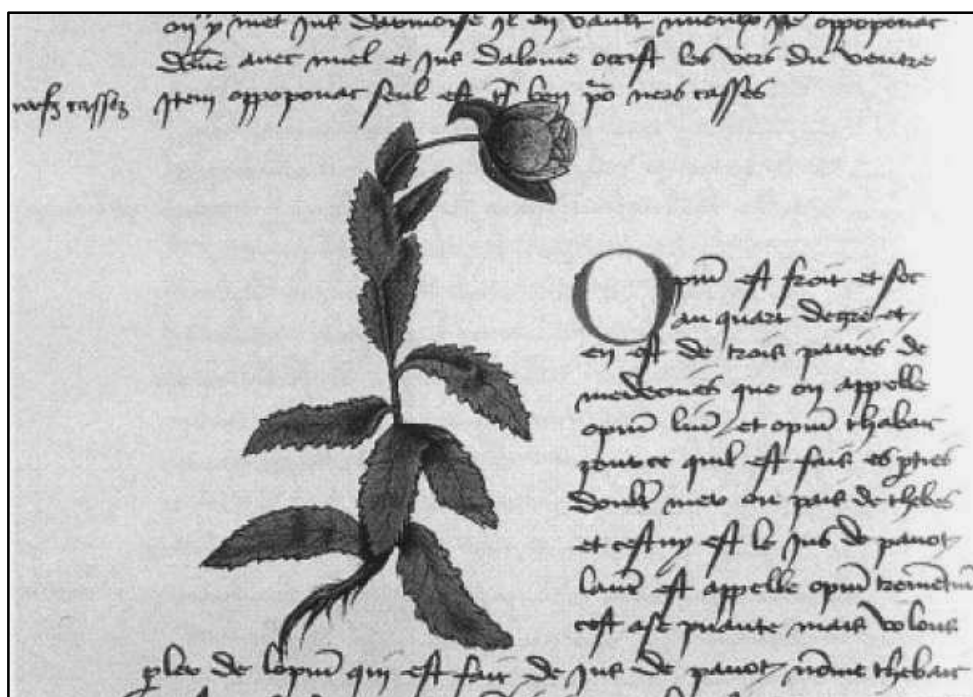 on y met jus darmoise il en vault mieulx Jtē oppoponac
auec miel et jus daloine occist les vers du ventre
nerfz cassez
Jtem oppoponac seul est tˢ bon po᷑ ners casses
Opiū est froit et sec
au quart degre et
en est de trois
medecines que on appelle
opiū et opiū thebaic
pource quil est fait es pties
mer ou pais de thebes
et cestuy est le jus de pauot
est appelle opiū
cest ase puante mais volons
pler de lopiū qui est fait de jus de pauot nōme thebaic